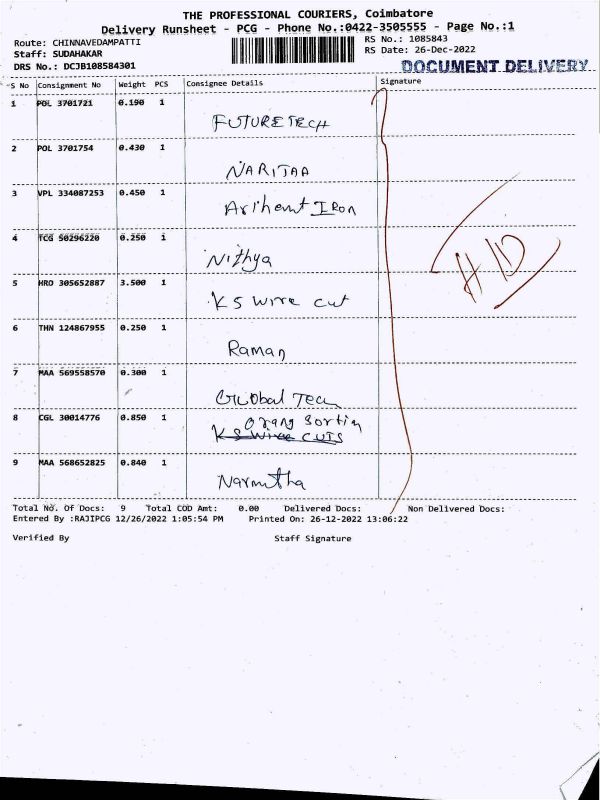 THE PROFESSIONAL COURIERS, Coimbatore
Delivery Runsheet - PCG - Phone No.:0422-3505555 - Page No.:1
Route: CHINNAVEDAMPATTI
Staff: SUDAHAKAR
DRS No.: DCJB108584301
RS No.: 1085843
RS Date: 26-Dec-2022
DOCUMENT DELIVERY
S No Consignment No Weight PCS Consignee Details Signature
1 POL 3701721 0.190 1
FUTURETECH
2 POL 3701754 0.430 1
NARITAA
3 VPL 334087253 0.450 1
Arihant Iron
4 TCG 50296220 0.250 1
Nithya
H/D
5 HRD 305652887 3.500 1
KS wire cut
6 THN 124867955 0.250 1
Raman
7 MAA 569558570 0.300 1
Global Tech
8 CGL 30014776 0.850 1
KS Wire CUTS
9 MAA 568652825 0.840 1
Narmtha
Total No. Of Docs: 9 Total COD Amt: 0.00 Delivered Docs: Non Delivered Docs:
Entered By :RAJIPCG 12/26/2022 1:05:54 PM Printed On: 26-12-2022 13:06:22
Verified By Staff Signature